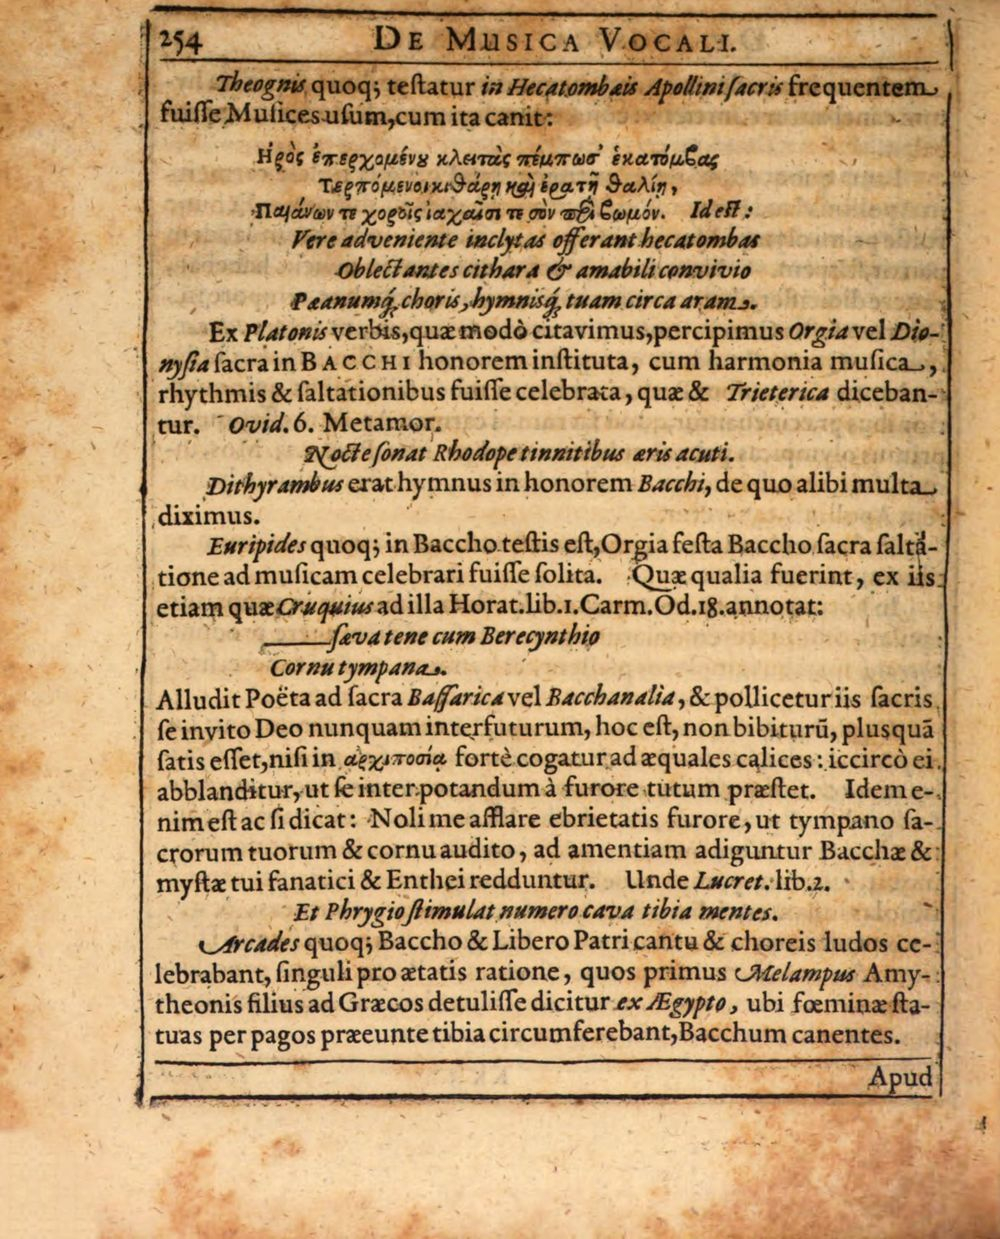 254 DE MUSICA VOCALI.
Theognis quoq; testatur in Hecatombais Apollini sacris frequentem
fuisse Musices usum, cum ita canit:
Ηρὸς ἐπερχομένου κλειτὰς πέμπωσ' ἑκατόμβας
Τερπόμενοι κιθάρῃ καὶ ἐρατῇ θαλίῃ,
Παιάνων τε χοροῖς ἰαχαῖσί τε σὸν περὶ βωμόν. Id est:
Vere adveniente inclytas offerant hecatombas
Oblectantes cithara & amabili convivio
Pæanumq́, choris, hymnisq́, tuam circa aram.
Ex Platonis verbis, quæ modò citavimus, percipimus Orgia vel Dio-
nysia sacra in BACCHI honorem instituta, cum harmonia musica,
rhythmis & saltationibus fuisse celebrata, quæ & Trieterica diceban-
tur. Ovid. 6. Metamor.
Nocte sonat Rhodope tinnitibus æris acuti.
Dithyrambus erat hymnus in honorem Bacchi, de quo alibi multa
diximus.
Euripides quoq; in Baccho testis est, Orgia festa Baccho sacra salta-
tione ad musicam celebrari fuisse solita. Quæ qualia fuerint, ex iis
etiam quæ Cruquius ad illa Horat. lib. 1. Carm. Od. 18. annotat:
——sæva tene cum Berecynthio
Cornu tympana.
Alludit Poëta ad sacra Bassarica vel Bacchanalia, & pollicetur iis sacris
se invito Deo nunquam interfuturum, hoc est, non bibiturū, plusquā
satis esset, nisi in αρχιποσίᾳ fortè cogatur ad æquales calices: iccircò ei
abblanditur, ut se inter potandum à furore tutum præstet. Idem e-
nim est ac si dicat: Noli me afflare ebrietatis furore, ut tympano sa-
crorum tuorum & cornu audito, ad amentiam adiguntur Bacchæ &
mystæ tui fanatici & Enthei redduntur. Unde Lucret. lib. 2.
Et Phrygio stimulat numero cava tibia mentes.
Arcades quoq; Baccho & Libero Patri cantu & choreis ludos ce-
lebrabant, singuli pro ætatis ratione, quos primus Melampus Amy-
theonis filius ad Græcos detulisse dicitur ex Ægypto, ubi fœminæ sta-
tuas per pagos præeunte tibia circumferebant, Bacchum canentes.
Apud